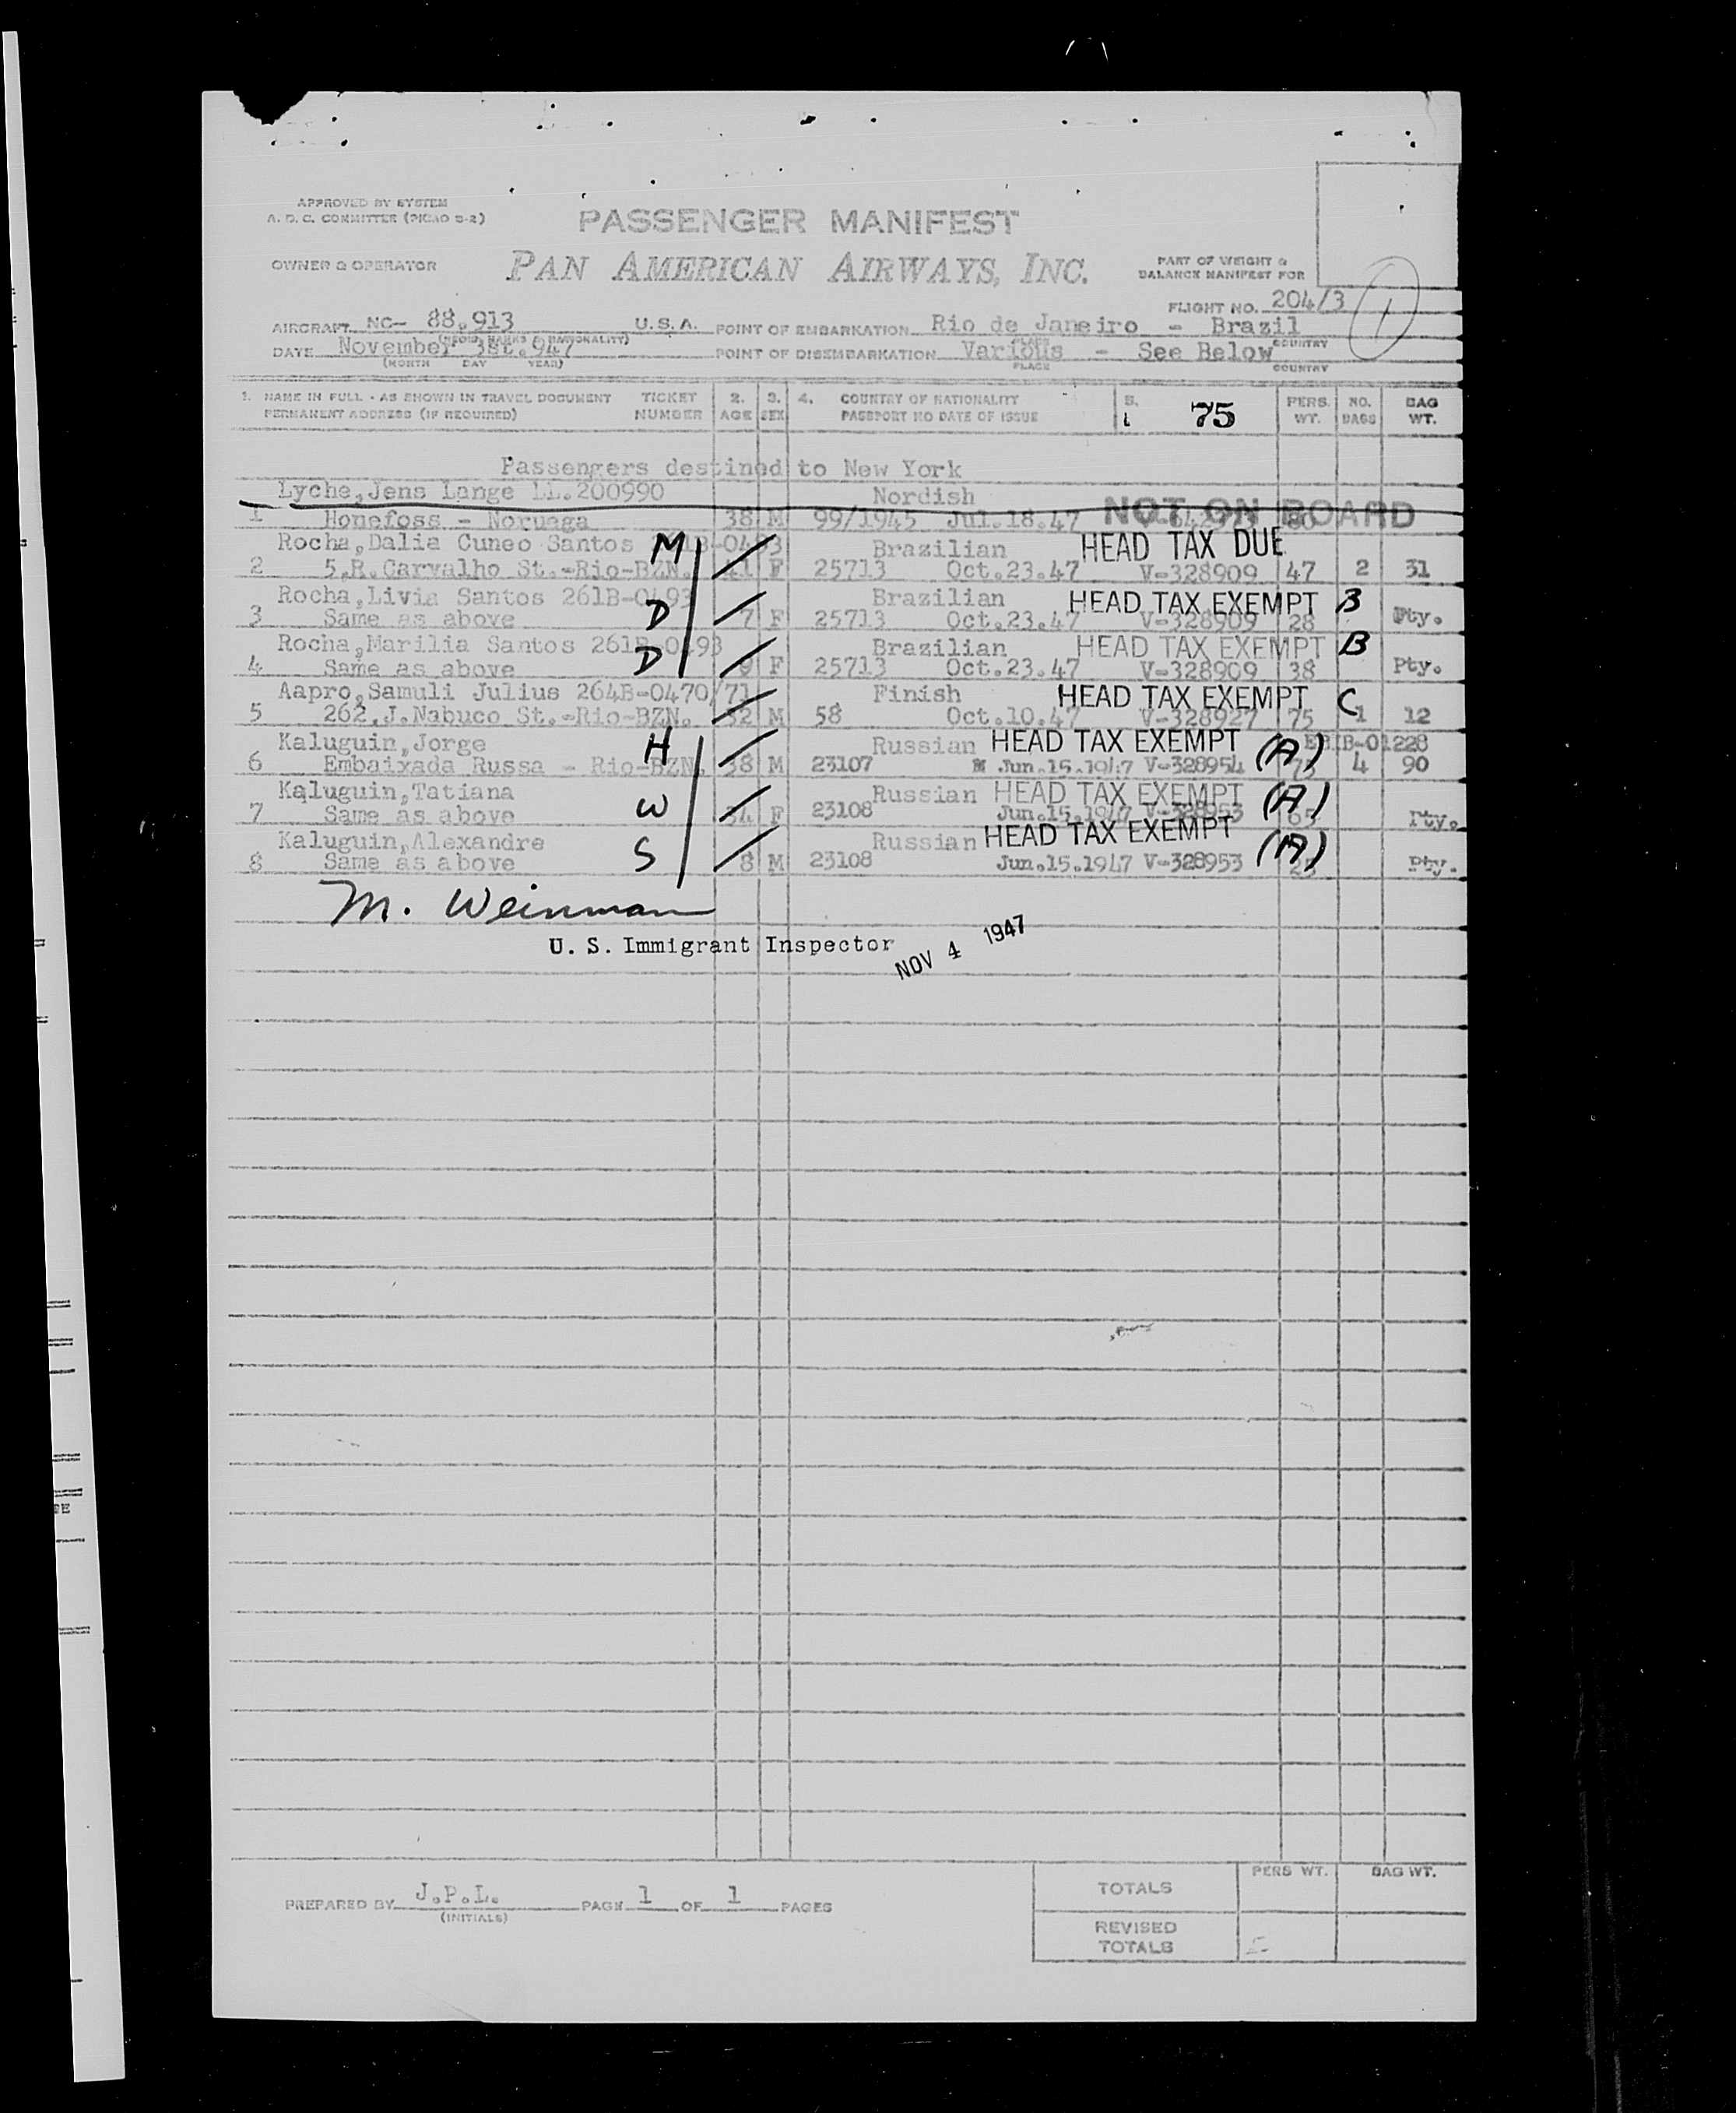 APPROVED BY SYSTEM
A. D. C. COMMITTEE (PICAO S-2)
PASSENGER MANIFEST
OWNER & OPERATOR PAN AMERICAN AIRWAYS, INC.
PART OF WEIGHT &
BALANCE MANIFEST FOR
FLIGHT NO. 204/3
1
AIRCRAFT NC- 88.913 U.S.A. POINT OF EMBARKATION Rio de Janeiro - Brazil
PLACE COUNTRY
DATE November 3st.947 POINT OF DISEMBARKATION Various - See Below
(MONTH DAY YEAR) PLACE COUNTRY
1. NAME IN FULL - AS SHOWN IN TRAVEL DOCUMENT TICKET 2. 3. 4. COUNTRY OF NATIONALITY 5. 75 PERS. NO. BAG
PERMANENT ADDRESS (IF REQUIRED) NUMBER AGE SEX PASSPORT NO DATE OF ISSUE WT. BAGS WT.
Passengers destined to New York
Lyche,Jens Lange LL.200990 Nordish NOT ON BOARD
1 Honefoss - Noruega 38 M 99/1945 Jul.18.47 80
Rocha,Dalia Cuneo Santos M Brazilian HEAD TAX DUE
2 5,R.Carvalho St.-Rio-BZN. 41 F 25713 Oct.23.47 V-328909 47 2 31
Rocha,Livia Santos 261B-0493 D Brazilian HEAD TAX EXEMPT B
3 Same as above 7 F 25713 Oct.23.47 V-328909 28 Pty.
Rocha,Marilia Santos 261B-0493 D Brazilian HEAD TAX EXEMPT B
4 Same as above 9 F 25713 Oct.23.47 V-328909 38 Pty.
Aapro,Samuli Julius 264B-0470/71 Finish HEAD TAX EXEMPT C
5 262,J.Nabuco St.-Rio-BZN. 32 M 58 Oct.10.47 V-328927 75 1 12
Kaluguin,Jorge H Russian HEAD TAX EXEMPT (A)
6 Embaixada Russa - Rio-BZN. 38 M 23107 Jun.15.1947 V-328954 75 4 90
Kaluguin,Tatiana W Russian HEAD TAX EXEMPT (A)
7 Same as above 34 F 23108 Jun.15.1947 V-328953 65 Pty.
Kaluguin,Alexandre S Russian HEAD TAX EXEMPT (A)
8 Same as above 8 M 23108 Jun.15.1947 V-328953 25 Pty.
M. Weinman
U. S. Immigrant Inspector NOV 4 1947
PERS WT. BAG WT.
TOTALS
PREPARED BY J.P.L. PAGE 1 OF 1 PAGES
(INITIALS)
REVISED
TOTALS